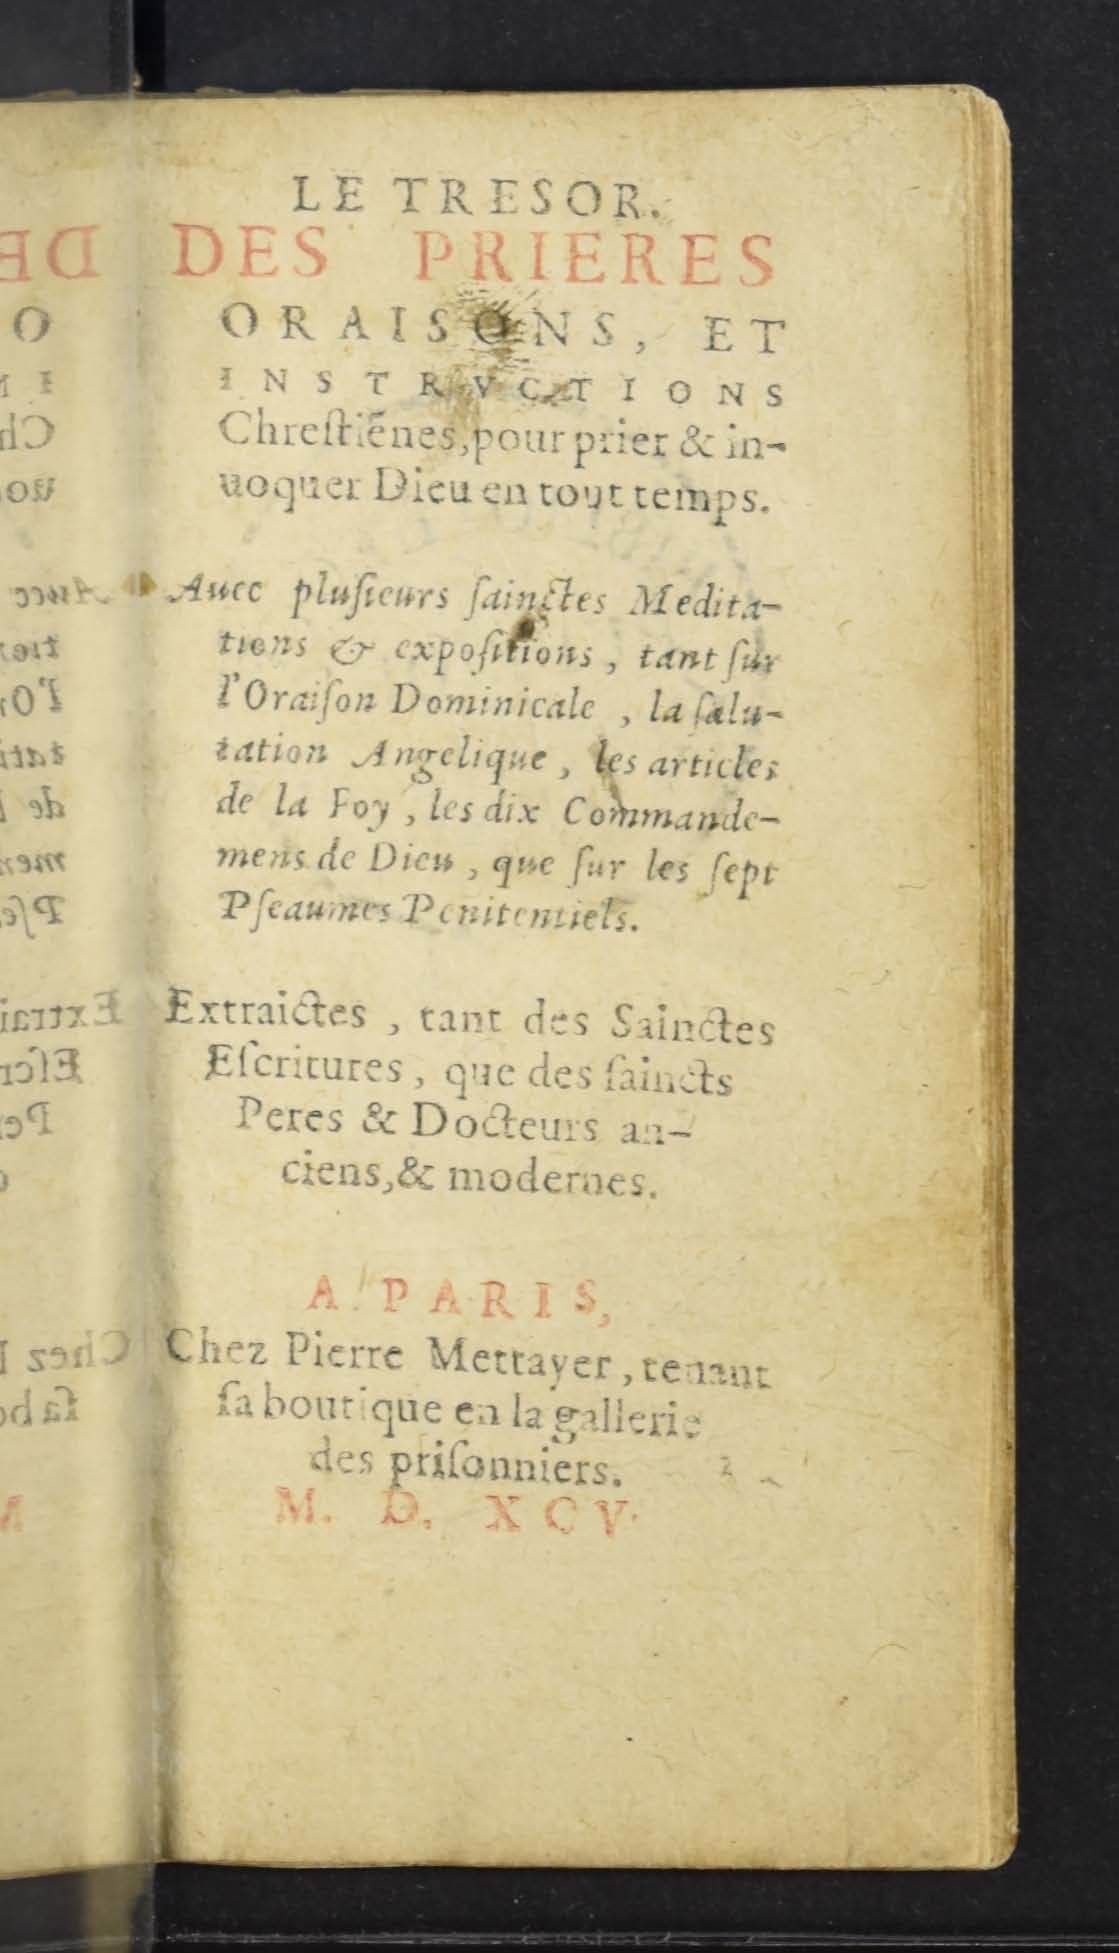 LE TRESOR.
DES PRIERES
ORAISONS, ET
INSTRVCTIONS
Chreſtiẽnes, pour prier & in-
uoquer Dieu en tout temps.
Auec pluſieurs ſainctes Medita-
tions & expoſitions, tant ſur
l'Oraiſon Dominicale, la ſalu-
tation Angelique, les articles
de la Foy, les dix Commande-
mens de Dieu, que ſur les ſept
Pſeaumes Penitentiels.
Extraictes, tant des Sainctes
Eſcritures, que des ſaincts
Peres & Docteurs an-
ciens, & modernes.
A PARIS,
Chez Pierre Mettayer, tenant
ſa boutique en la gallerie
des priſonniers.
M. D. XCV.